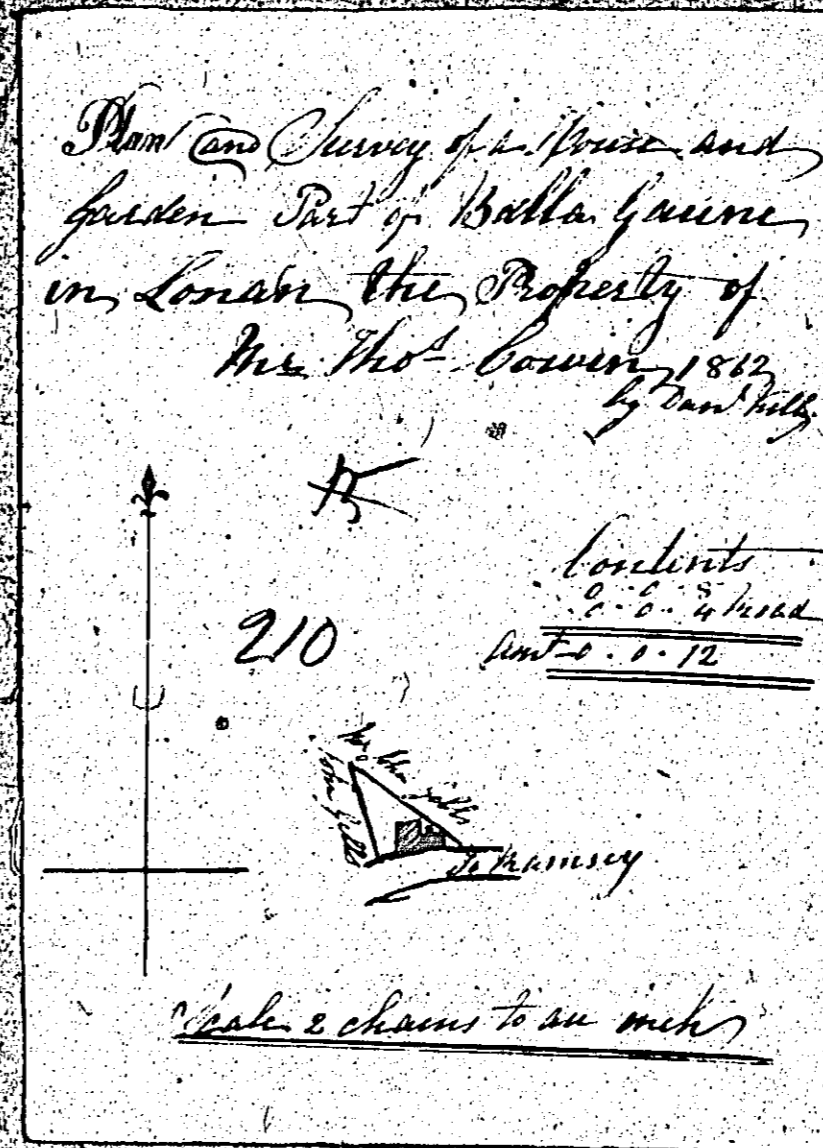 Plan and Survey of a House and
Garden Part of Balla Gawne
in Lonan the Property of
Mr. Thos. Cowin 1862
by Danl Kelly
210
Contents
0 . 0 . 8
0 . 0 . 4 Road
Amt 0 . 0 . 12
John Gell
To Ramsey
Scale 2 chains to an inch